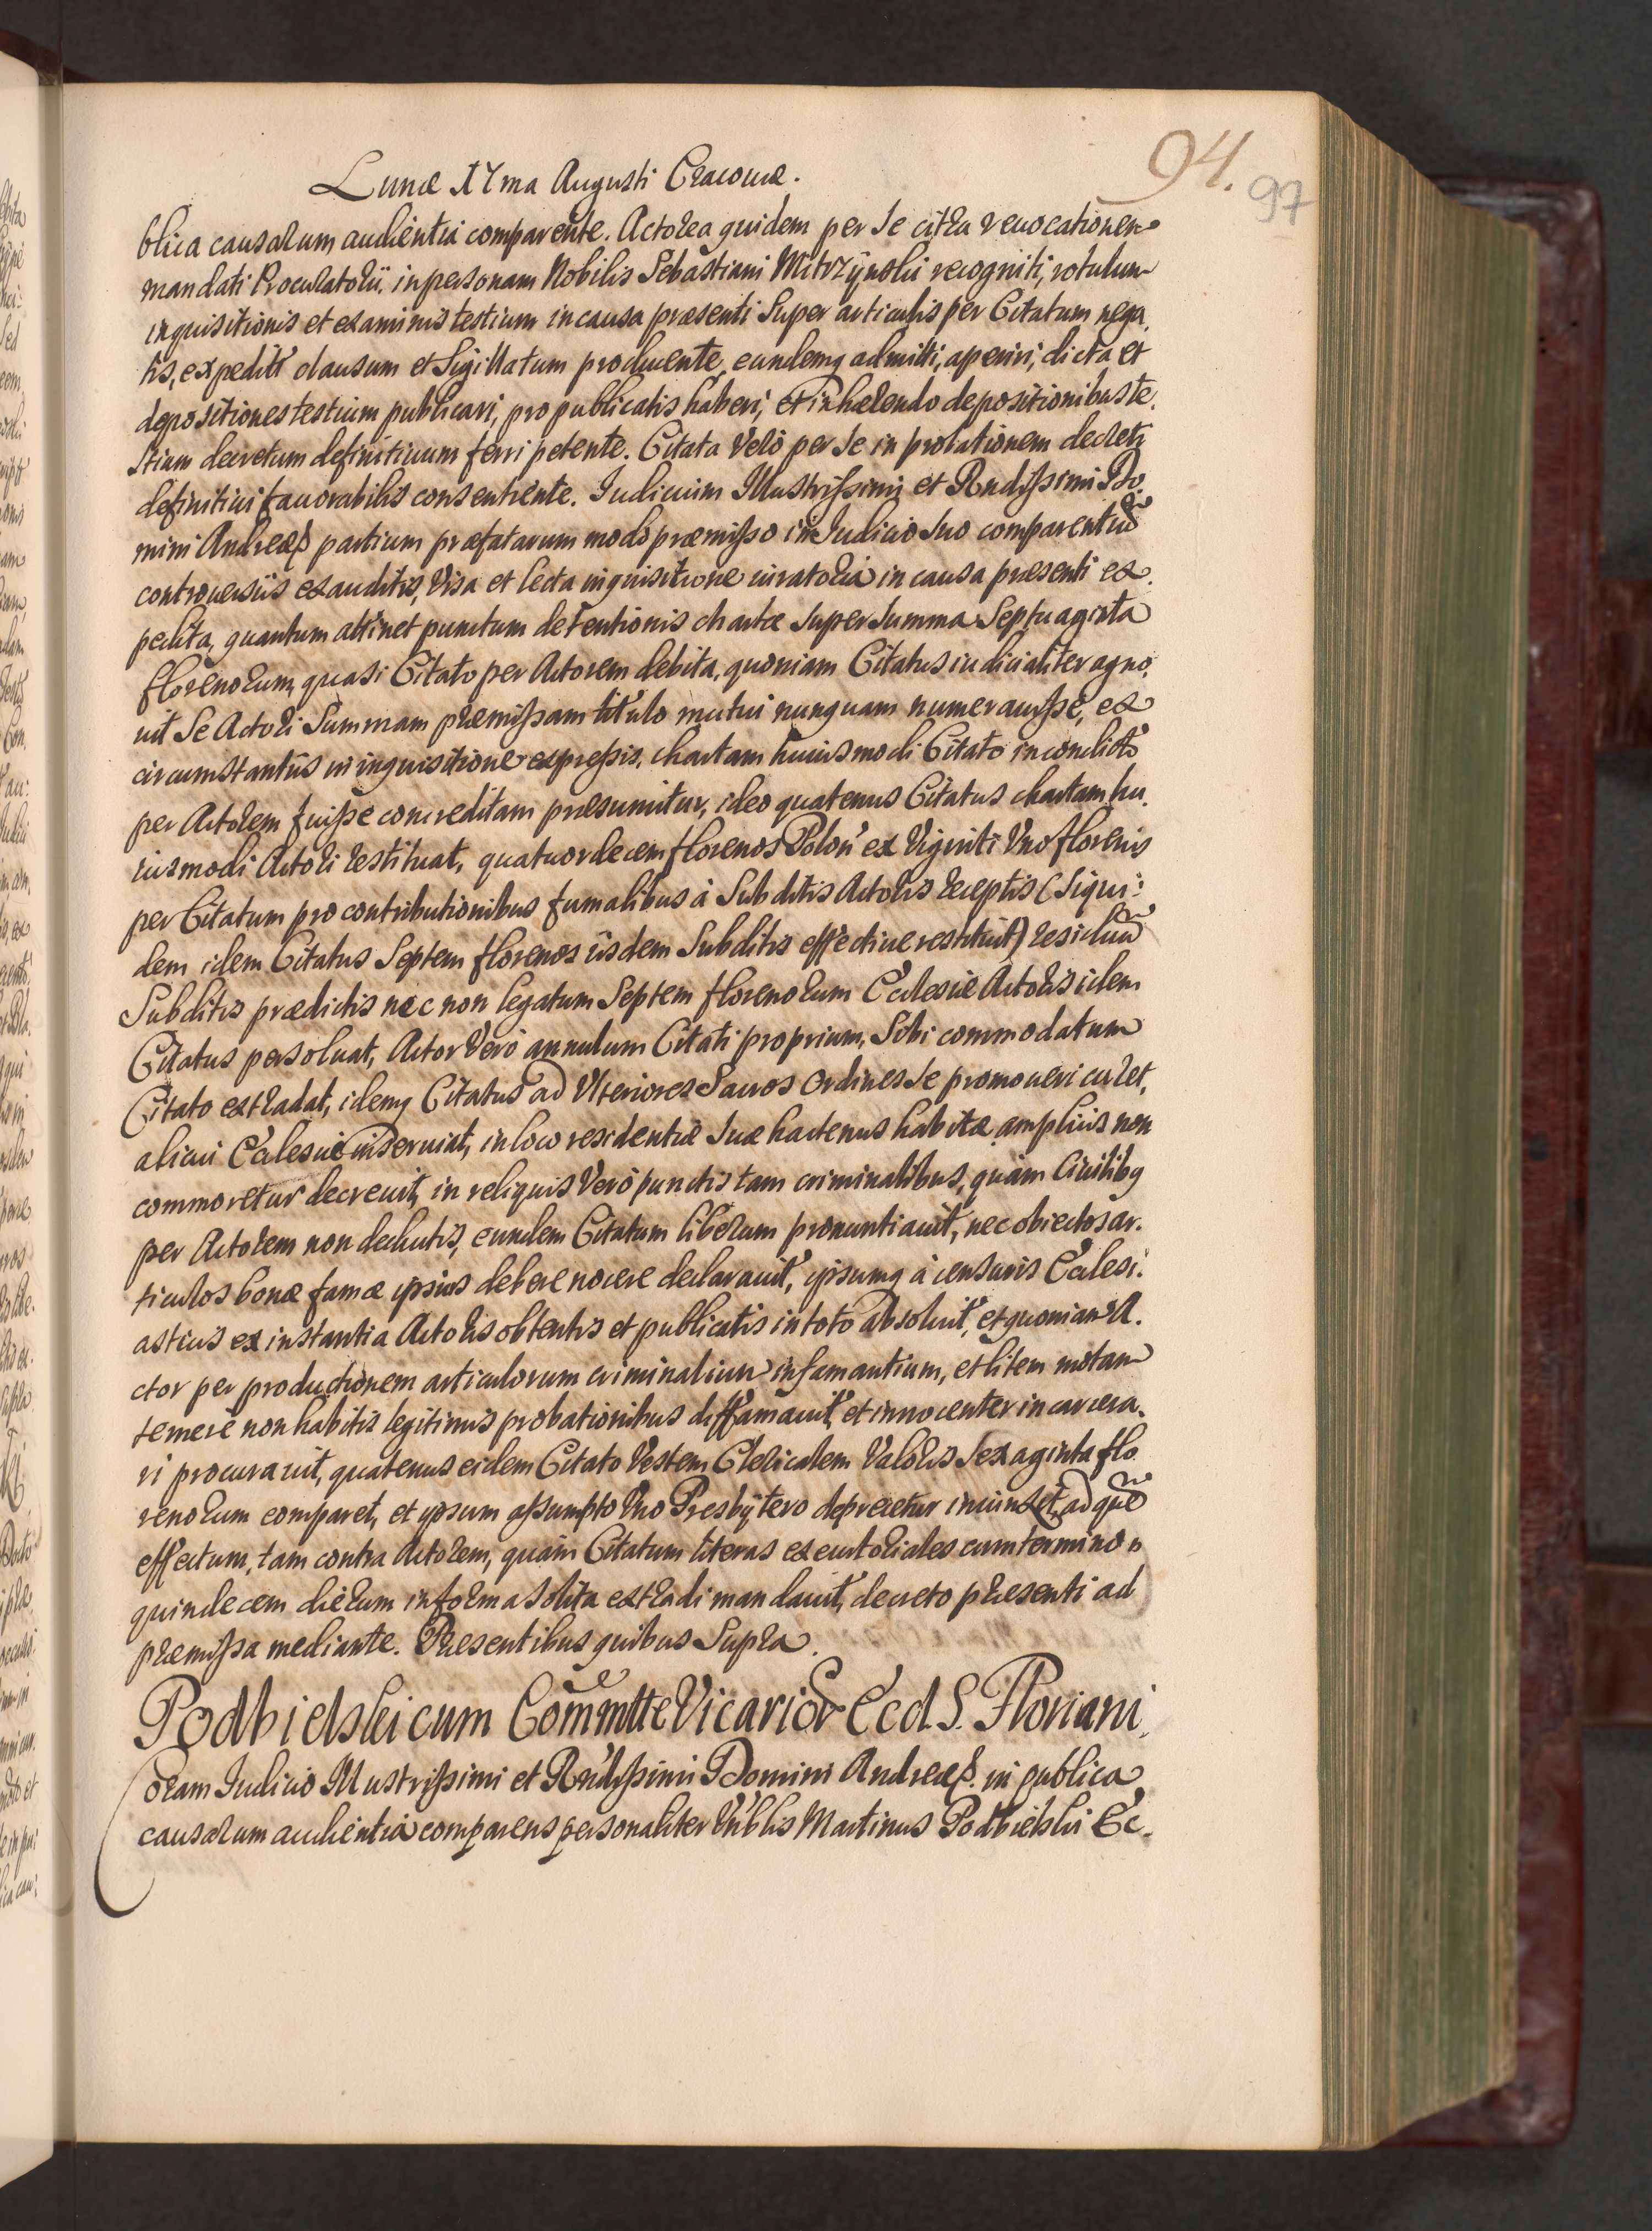 94.
97
Lunæ XVma Augusti Cracouiæ.
blica causarum audientia comparente. Actorea quidem per se citra reuocationem
mandati Procuratorii, in personam Nobilis Sebastiani recogniti, rotulum
inquisitionis et examinis testium in causa præsenti super articulis per Citatum nega,
tis, expedit' clausum et sigillatum producente, eundemq admitti, aperiri, dicta et
depositiones testium publicari, pro publicatis haberi, et inhærendo depositionibus te,
stium decretum definitiuum ferri petente. Citata verò per se in prolationem decreti
definitiui fauorabilis consentiente. Iudicium Illustrissimi et Rndissimi Do,
mini Andreæ partium præfatarum modo præmisso in Iudicio suo comparentiu
controuersiis exauditis, visa et lecta inquisitione iuratoria in causa præsenti ex,
pedita, quantum attinet punctum detentionis chartæ super summa Septuaginta
florenorum, quasi Citato per Actorem debita, quoniam Citatus iudicialiter agno,
uit se Actori summam præmissam titulo mutui nunquam numerauisse, ex
circumstantiis in inquisitione expressis, chartam huiusmodi Citato in condicto
per Actorem fuisse concreditam præsumitur, ideo quatenus Citatus chartam hu,
iusmodi Actori restituat, quatuordecem florenos Polon' ex Viginti Vno florenis
per Citatum pro contributionibus fumalibus à Subditis Actoris receptis (siqui:
dem idem Citatus Septem florenos iisdem Subditis effectiue restituit) residuu
Subditis prædictis nec non legatum Septem florenorum Ecclesiæ Actoris idem
Citatus persoluat, Actor verò annulum Citati proprium, sibi commodatum
Citato extradat, idemq Citatus ad Vlteriores Sacros Ordines se promoueri curet,
alicui Ecclesiæ inseruiat, in loco residentiæ suæ hactenus habitæ amplius non
commoretur decreuit, in reliquis verò punctis tam criminalibus, quàm Ciuilibq
per Actorem non deductis, eundem Citatum liberum pronuntiauit, nec obiectos ar,
ticulos bonæ famæ ipsius debere nocere declarauit, ipsumq à censuris Ecclesi:
asticis ex instantia Actoris obtentis et publicatis in toto absoluit, et quoniam A.
ctor per productionem articulorum criminalium infamantium, et litem motam
temerè non habitis legitimis probationibus diffamauit, et innocenter incarcera,
ri procurauit, quatenus eidem Citato Vestem Clericalem Valoris sexaginta flo
renorum comparet, et ipsum assumpto Vno Presbytero deprecetur iniunxit, ad que
effectum, tam contra Actorem, quàm Citatum literas executoriales cum termino
quindecem dierum in forma solita extradi mandauit, decreto præsenti ad
præmissa mediante. Præsentibus quibus supra.
Podbielski cum Commtte Vicarior Eccl. S. Floriani,
Coram Iudicio Illustrissimi et Rndissimi Domini Andreæ in publica
causarum audientia comparens personaliter Martinus Podbielski Ec,